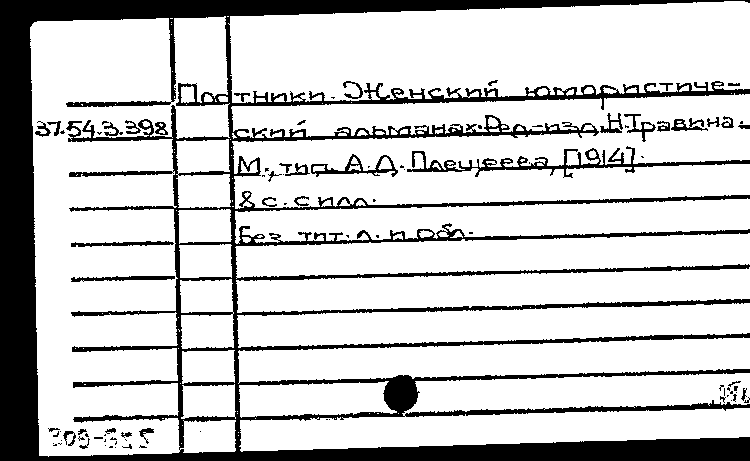 Плотники. Женский юмористиче-
37.54.3.398 ский альманах. Ред.-изд. Н.Травина.
М., тип. А.Д. Плещеева, [1914].
8 с. с илл.
Без тит. л. и обл.
309-655